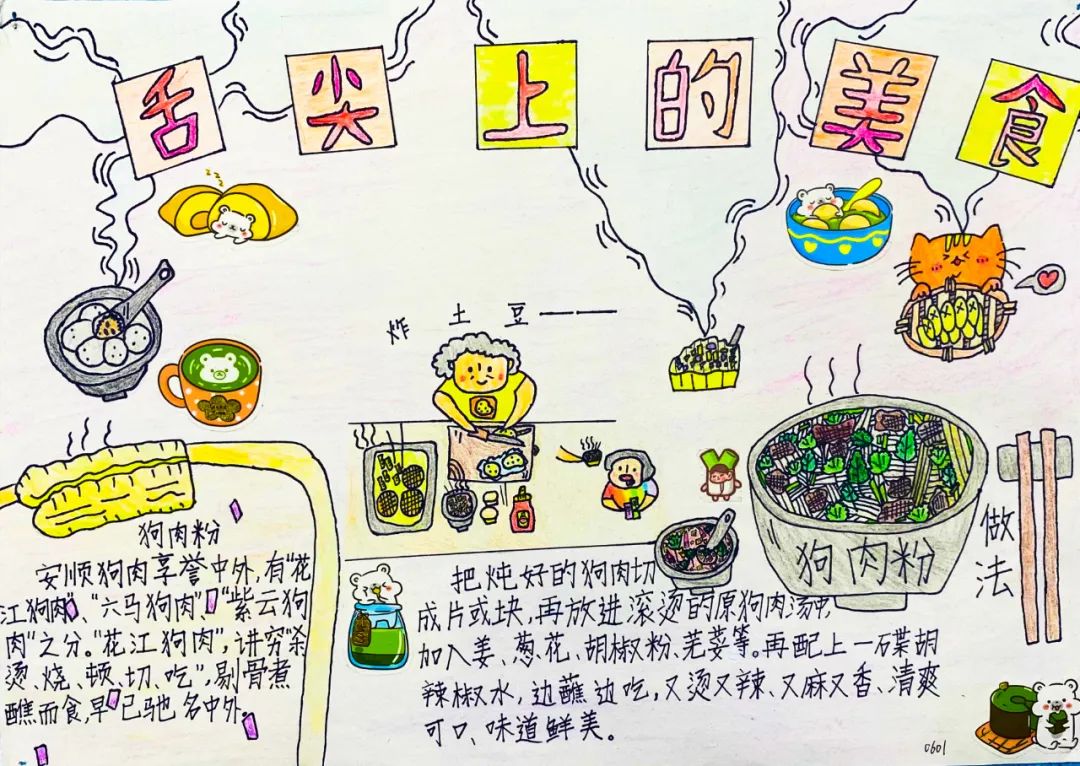 舌尖上的美食
炸土豆——
狗肉粉
安顺狗肉享誉中外,有"花
江狗肉"、"六马狗肉"、"紫云狗
肉"之分。"花江狗肉",讲穷"杀
烫、烧、顿、切、吃",剔骨煮
醮而食,早已驰名中外。
狗肉粉
做法
把炖好的狗肉切
成片或块,再放进滚烫的原狗肉汤中
加入姜、葱、花、胡椒粉、芫荽等。再配上一碟胡
辣椒水,边蘸边吃,又烫又辣、又麻又香、清爽
可口、味道鲜美。
0601